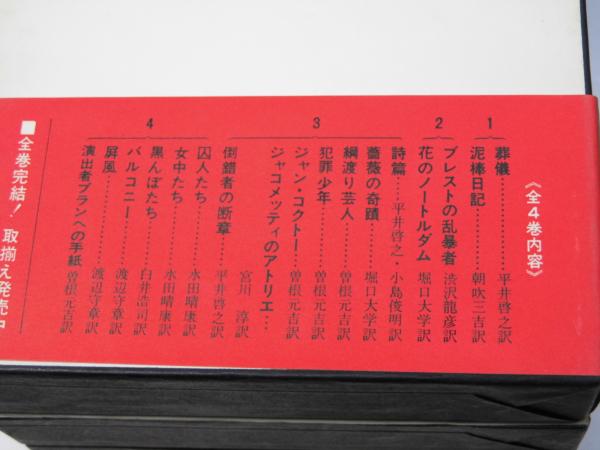 《全4巻内容》
1
葬儀…………平井啓之訳
泥棒日記…………朝吹三吉訳
2
ブレストの乱暴者 渋沢龍彦訳
花のノートルダム 堀口大学訳
3
詩篇……平井啓之・小島俊明訳
薔薇の奇蹟……堀口大学訳
綱渡り芸人……曽根元吉訳
犯罪少年…………曽根元吉訳
ジャン・コクトー…曽根元吉訳
ジャコメッティのアトリエ…
宮川 淳訳
倒錯者の断章……平井啓之訳
4
囚人たち…………水田晴康訳
女中たち…………水田晴康訳
黒んぼたち………白井浩司訳
バルコニー………渡辺守章訳
屏風…………渡辺守章訳
演出者ブランへの手紙 曽根元吉訳
■全巻完結! 取揃え発売中